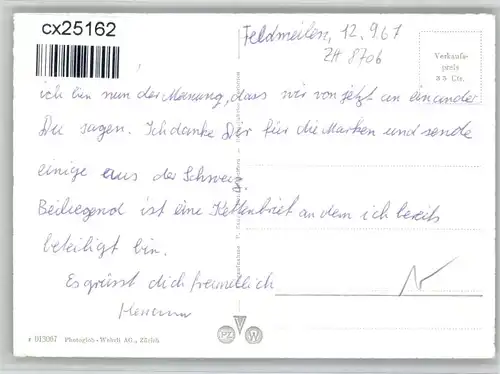 cx25162
Feldmeilen, 12.9.67
ZH 8706
Verkaufs-
preis
35 Ctr.
ich bin nun der Meinung, dass wir von jetzt an einander
Du sagen. Ich danke Dir für die Marken und sende
einige aus der Schweiz.
Beiliegend ist eine Kettenbrief an dem ich bereits
beteiligt bin.
Es grüsst dich freundlich
Hermann
r 013067 Photoglob-Wehrli AG., Zürich
PZ W